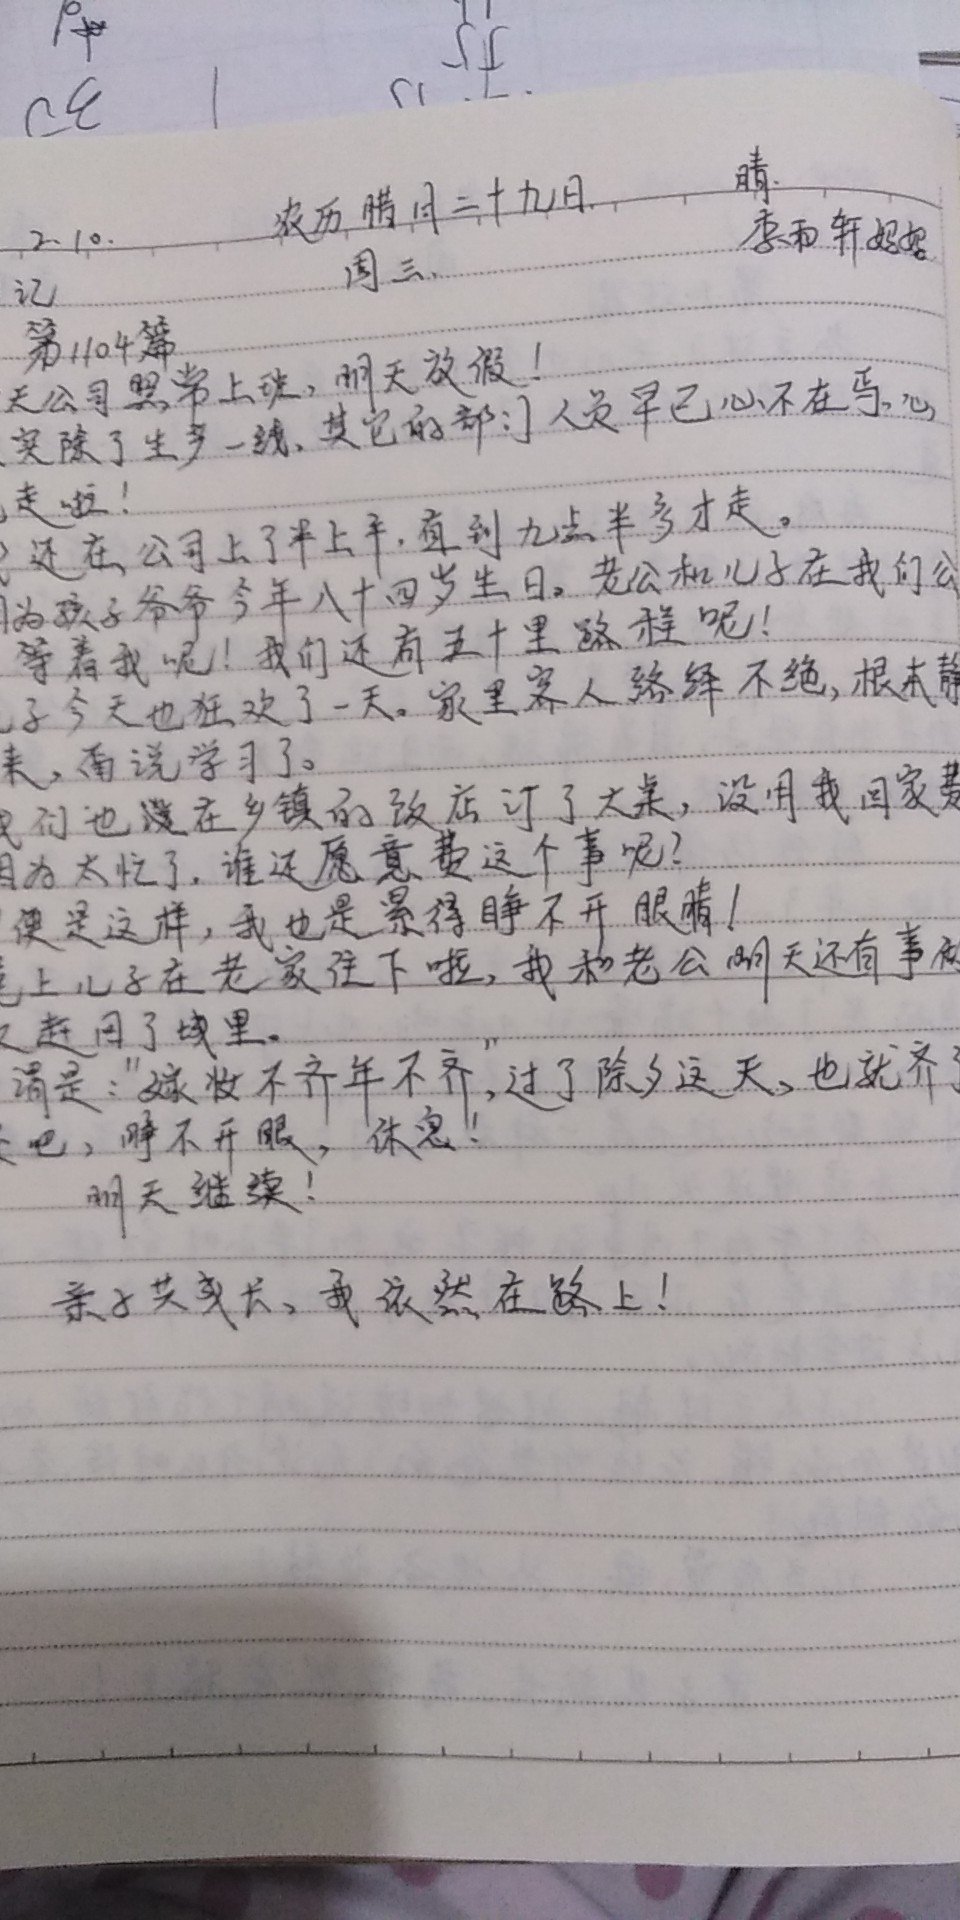 2.10. 农历腊月二十九日. 晴.
周三. 李雨轩妈妈
记
第1104篇
天公司照常上班,明天放假!
实除了生产一线,其它的部门人员早已心不在焉,心
走啦!
还在公司上了半上午,直到九点半多才走。
因为孩子爷爷今年八十四岁生日。老公和儿子在我们公
等着我呢!我们还有五十里路程呢!
儿子今天也狂欢了一天。家里客人络绎不绝,根本静
来,甭说学习了。
我们也在乡镇的饭店订了大桌,没用我回家费
因为太忙了,谁还愿意费这个事呢?
便是这样,我也是累得睁不开眼睛!
晚上儿子在老家住下啦,我和老公明天还有事
又赶回了城里。
谓是:"嫁妆不齐年不齐",过了除夕这天,也就齐了
吧,睁不开眼,休息!
明天继续!
亲子共成长,我依然在路上!